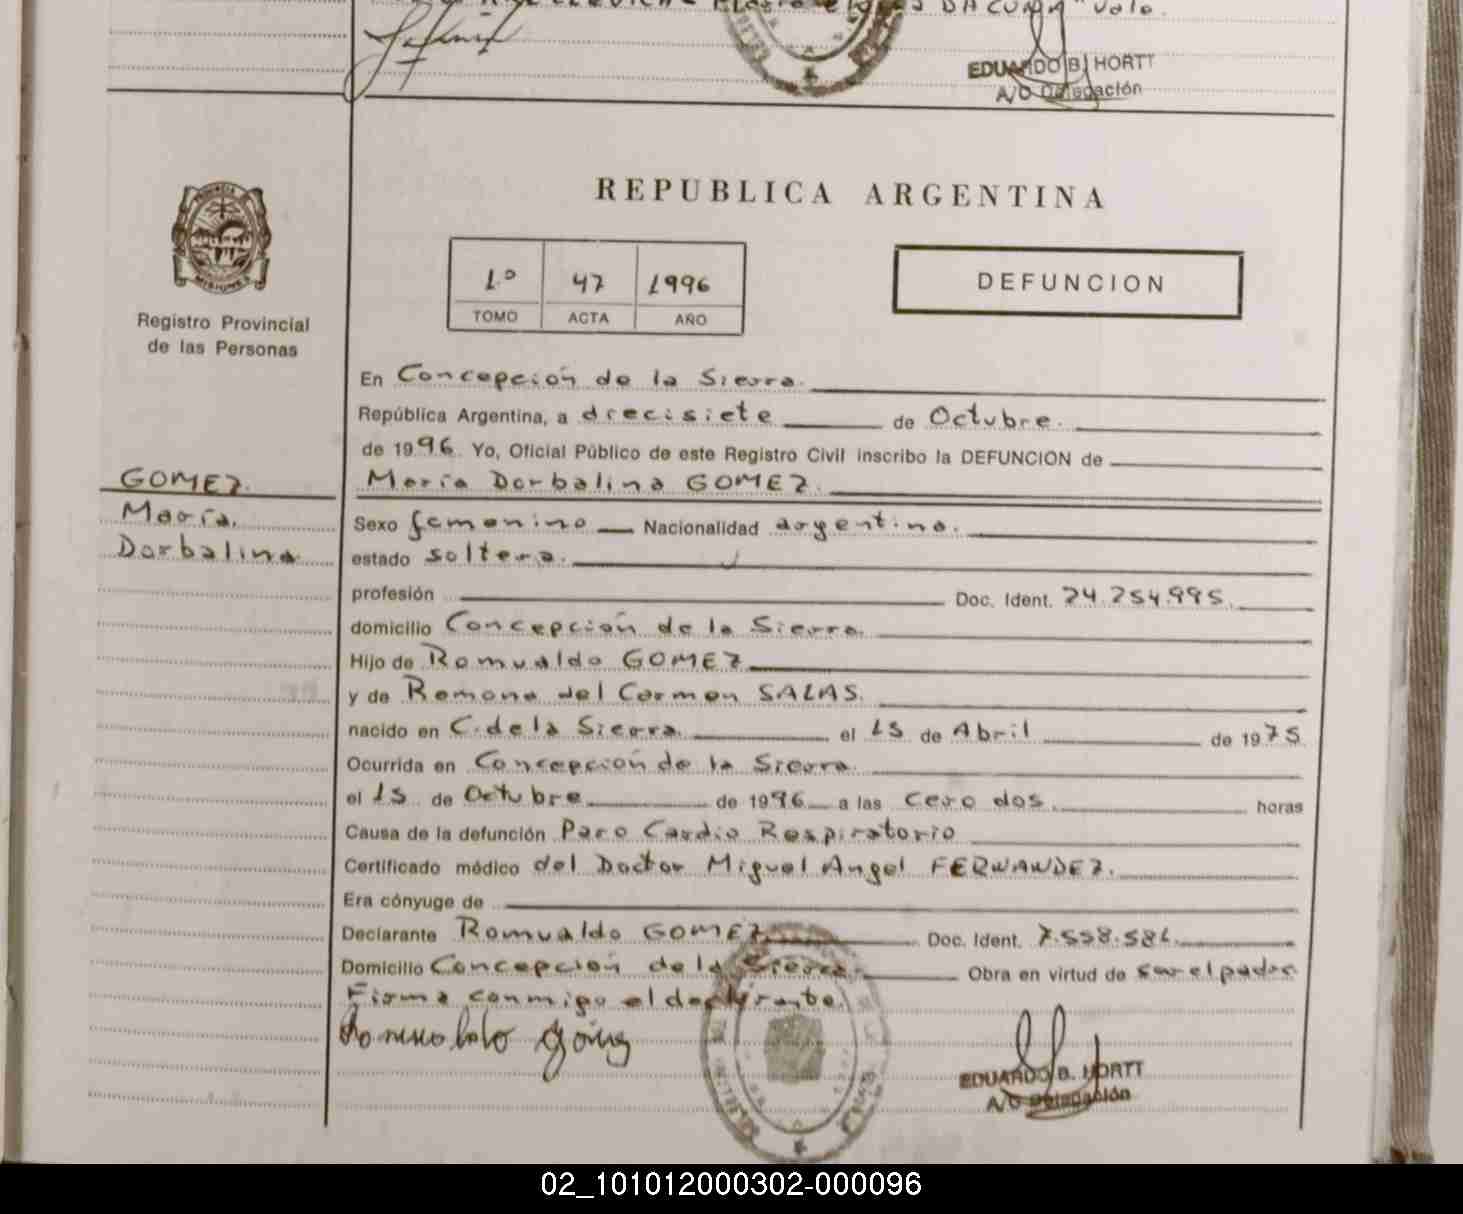 DACUNA" Vale.
EDUARDO B. HORTT
A/C Delegación
REPUBLICA ARGENTINA
1º 47 1996
TOMO ACTA AÑO
DEFUNCION
MISIONES
Registro Provincial
de las Personas
En Concepción de la Sierra.
República Argentina, a diecisiete de Octubre.
de 1996. Yo, Oficial Público de este Registro Civil inscribo la DEFUNCION de
GOMEZ.
María Dorbalina GOMEZ.
María.
Sexo femenino Nacionalidad argentina.
Dorbalina
estado soltera.
profesión Doc. Ident. 24.254.995.
domicilio Concepción de la Sierra.
Hijo de Romualdo GOMEZ
y de Ramona del Carmen SALAS.
nacido en C. de la Sierra. el 15 de Abril de 1975
Ocurrida en Concepción de la Sierra.
el 15 de Octubre de 1996 a las cero dos. horas
Causa de la defunción Paro Cardio Respiratorio
Certificado médico del Doctor Miguel Angel FERNANDEZ.
Era cónyuge de
Declarante Romualdo GOMEZ Doc. Ident. 7.558.586.
Domicilio Concepción de la Sierra. Obra en virtud de ser el padre
Firma conmigo el declarante.
EDUARDO B. HORTT
A/C Delegación
02_101012000302-000096